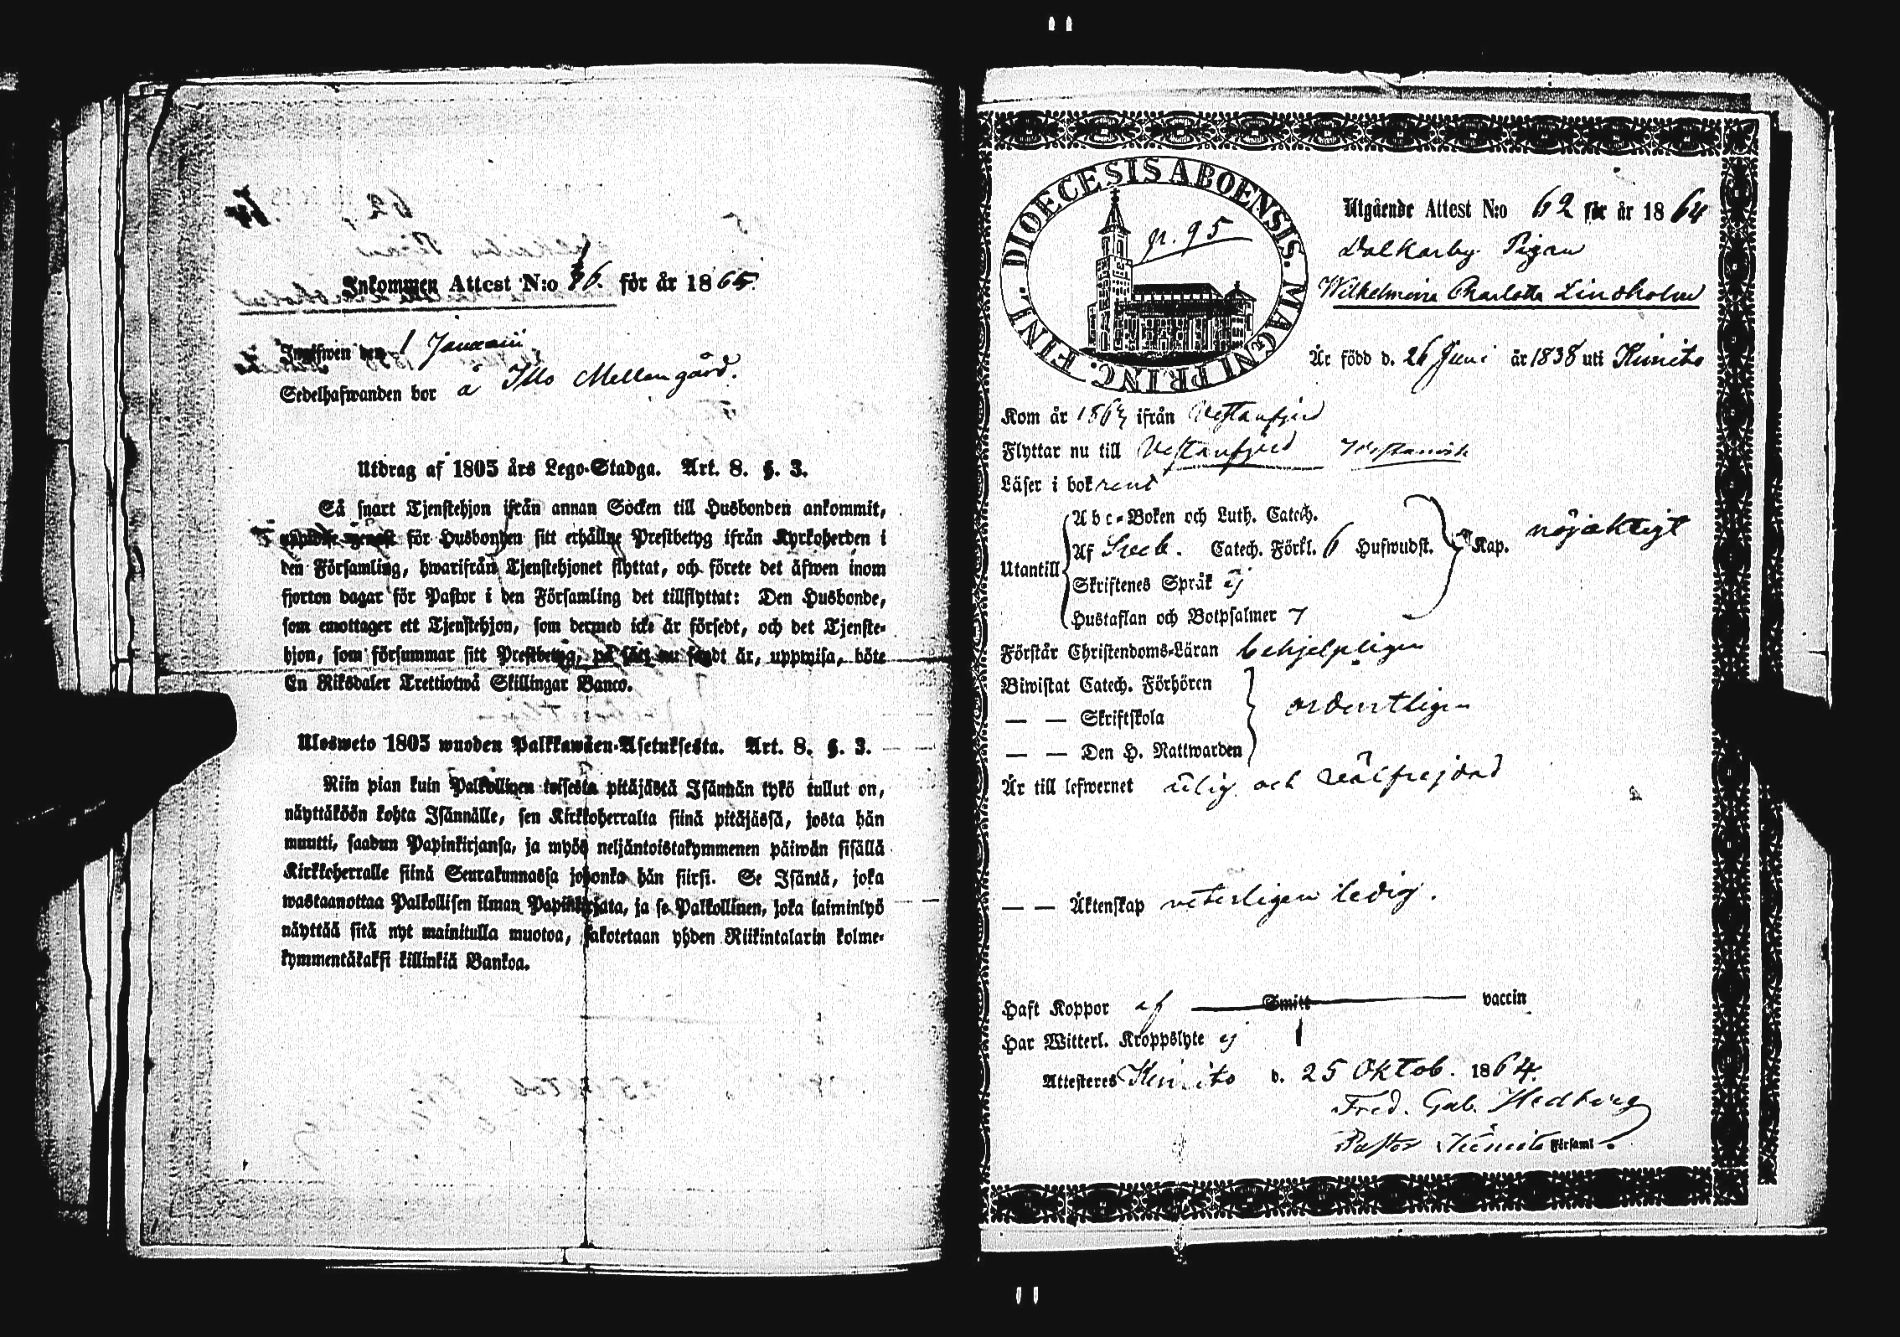 Inkommen Attest N:o 76. för år 1865.
Ingifwen den 1 Januarii
Sedelhafwanden bor å Illo Mellangård.
Utdrag af 1805 års Lego-Stadga. Art. 8. §. 3.
Så snart Tjenstehjon ifrån annan Socken till Husbonden ankommit,
för Husbonden sitt erhållne Prestbetyg ifrån Kyrkoherden i
den Församling, hwarifrån Tjenstehjonet flyttat, och förete det äfwen inom
fjorton dagar för Pastor i den Församling det tillflyttat: Den Husbonde,
som emottager ett Tjenstehjon, som dermed icke är försedt, och det Tjenste-
hjon, som försummar sitt Prestbetyg, på sätt nu sagdt är, uppwisa, böte
En Riksdaler Trettiotwå Skillingar Banco.
Ulosweto 1805 wuoden Palkkawäen-Asetuksesta. Art. 8. §. 3.
Niin pian kuin Palkollinen toisesta pitäjästä Isännän tykö tullut on,
näyttäköön kohta Isännälle, sen Kirkkoherralta siinä pitäjässä, josta hän
muutti, saadun Papinkirjansa, ja myös neljäntoistakymmenen päiwän sisällä
Kirkkoherralle siinä Seurakunnassa johonka hän siirsi. Se Isäntä, joka
wastaanottaa Palkollisen ilman Papinkirjata, ja se Palkollinen, joka laiminlyö
näyttää sitä nyt mainitulla muotoa, sakotetaan yhden Riikintalarin kolme-
kymmentäkaksi killinkiä Bankoa.
DIOECESIS ABOENSIS. MAGNI PRINC. FINL.
p. 95
Utgående Attest N:o 62 för år 1864
Dalkarby Pigan
Wilhelmina Charlotta Lindholm
Är född d. 26 Juni år 1838 uti Kimito
Kom år 1863 ifrån Westanfjerd
Flyttar nu till Westanfjerd
Läser i bok rent
Utantill
Abc-Boken och Luth. Catech.
Af Sveb. Catech. Förkl. 6 Hufwudst. Kap. nöjaktigt
Skriftenes Språk ej
Hustaflan och Botpsalmer 7
Förstår Christendoms-Läran behjelpligen
Biwistat Catech. Förhören
— — Skriftskola ordentligen
— — Den H. Nattwarden
Är till lefwernet ärlig och wälfrejdad
— — Äktenskap veterligen ledig.
Haft Koppor af Smitt vaccin
Har Witterl. Kroppslyte ej
Attesteres Kimito d. 25 Oktob. 1864.
Fred. Gab. Hedberg
Pastor i Kimito Församl.